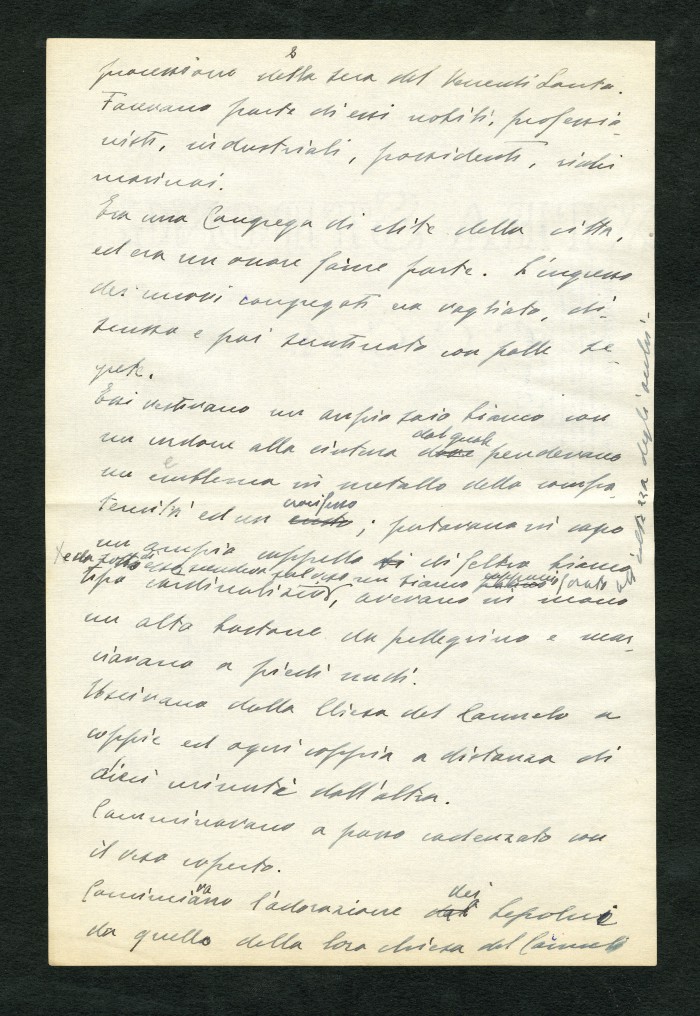 2
processione della sera del Venerdì Santo.
Facevano parte di essi nobili, professio-
nisti, industriali, possidenti, ricchi
marinai.
Era una Congrega di elite della citta,
ed era un onore farne parte. L'ingresso
dei nuovi congregati era vagliato, di-
scusso e poi scrutinato con palle se-
grete.
Essi vestivano un ampio saio bianco con
un cordone alla cintura dove dal quale pendevano
un emblema in metallo della confra-
ternita ed un crocifisso; portavano in capo
un ampio cappello di feltro bianco
tipo cardinalizio, avevano in mano
x e da sotto esso scendeva sul viso un bianco cappuccio forato all'altezza degli occhi.
un alto bastone da pellegrino e mar-
ciavano a piedi nudi.
Uscivano dalla Chiesa del Carmelo a
coppie ed ogni coppia a distanza di
dieci minuti dall'altra.
Camminavano a passo cadenzato con
il viso coperto.
Cominciavano l'adorazione dei Sepolcri
da quello della loro chiesa del Carmelo